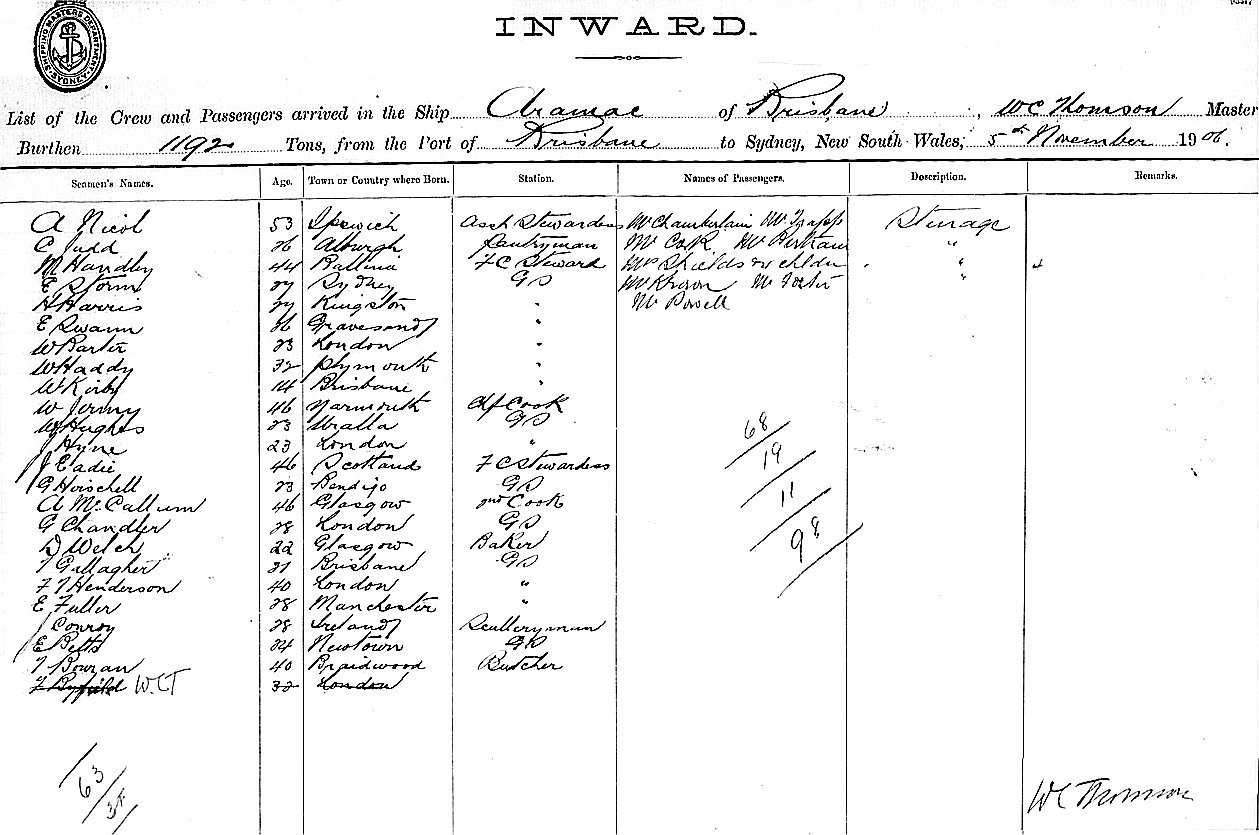 SHIPPING MASTERS DEPARTMENT SYDNEY
INWARD.
List of the Crew and Passengers arrived in the Ship Aramac of Brisbane, WC Thomson Master
Burthen 1192 Tons, from the Port of Brisbane to Sydney, New South Wales, 5th November 1906.
Seamen's Names. Age. Town or Country where Born. Station. Names of Passengers. Description. Remarks.
A Nicol 53 Ipswich Asst Stewardess Mr Chamberlain Mr Trapp Steerage
C Judd 26 Alburgh Pantryman Mr Cook Mr Bertram "
M Handley 44 Ballina F C Steward Mrs Shields & children "
E Storm 27 Sydney GS Mr Mr Foster "
H Harris 29 Kingston " Mr Powell
E Swann 26 Gravesend "
W Barter 23 London "
W Haddy 32 Plymouth "
W Kirby 14 Brisbane "
W Jermy 46 Yarmouth Chf Cook
W Hughes 23 Uralla GS
J Hyne 23 London "
J Eadie 46 Scotland F C Stewardess
G Hoischell 23 Bendigo GS
A McCallum 46 Glasgow 2nd Cook
G Chandler 28 London GS
D Welch 22 Glasgow Baker
T Gallagher 21 Brisbane GS
F T Henderson 40 London "
E Fuller 28 Manchester "
J Conroy 28 Ireland Sculleryman
E Betts 24 Newtown GS
T Bowran 40 Braidwood Butcher
F Byfield W.C.T 32 London
68
19
11
98
63
35
WC Thomson